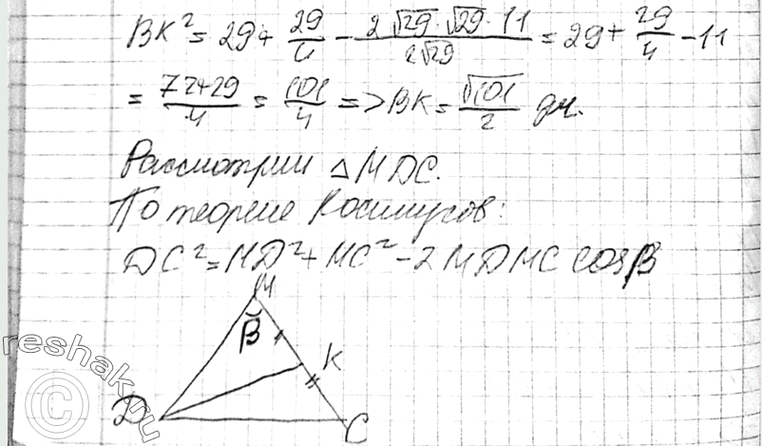 BK² = 29 + 29/4 - (2√29 · √29 · 11)/(2√29) = 29 + 29/4 - 11
= (72+29)/4 = 101/4 => BK = √101/2 дм.
Рассмотрим △MDC.
По теореме Косинусов:
DC² = MD² + MC² - 2 MD MC cosβ
M
β
K
D
C
reshak.ru
©